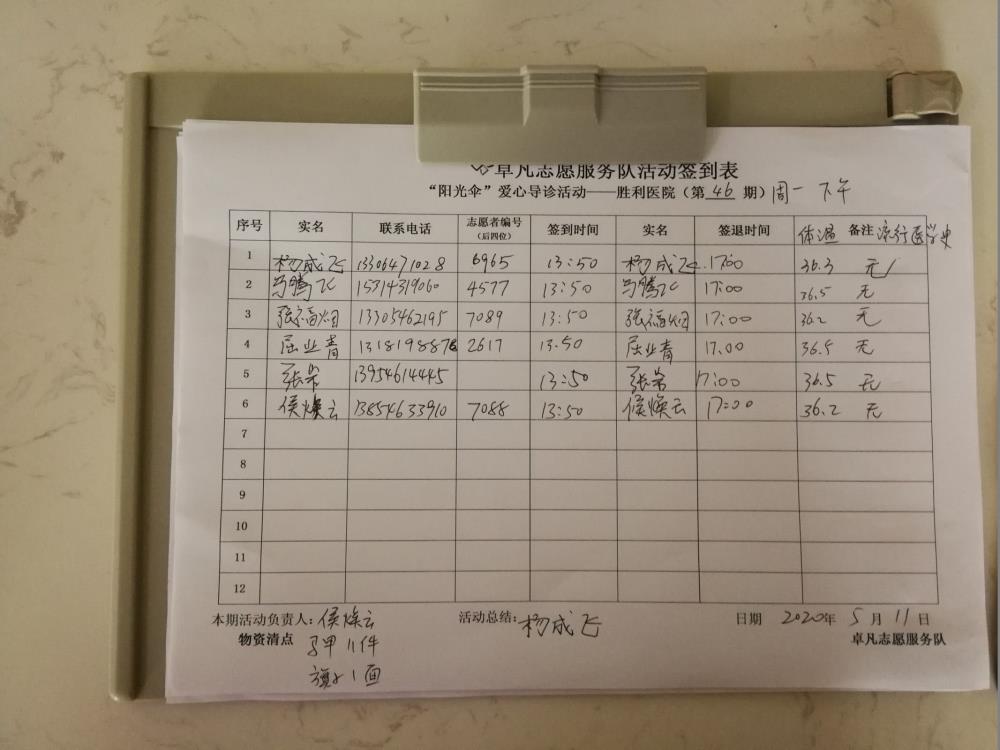 卓凡志愿服务队活动签到表
“阳光伞”爱心导诊活动——胜利医院（第 46 期）周一 下午
序号 实名 联系电话 志愿者编号（后四位） 签到时间 实名 签退时间 体温 备注 流行医学史
1 杨成飞 13306471028 6965 13:50 杨成飞 17:00 36.3 无
2 马腾飞 15314319060 4577 13:50 马腾飞 17:00 36.5 无
3 张福娟 13305462195 7089 13:50 张福娟 17:00 36.2 无
4 屈业青 13181988776 2617 13:50 屈业青 17:00 36.5 无
5 张荣 13954614445 13:50 张荣 17:00 36.5 无
6 侯焕云 13854633910 7088 13:50 侯焕云 17:00 36.2 无
7
8
9
10
11
12
本期活动负责人：侯焕云 活动总结：杨成飞 日期 2020年 5 月 11 日
物资清点 马甲 11件 卓凡志愿服务队
旗子 1 面